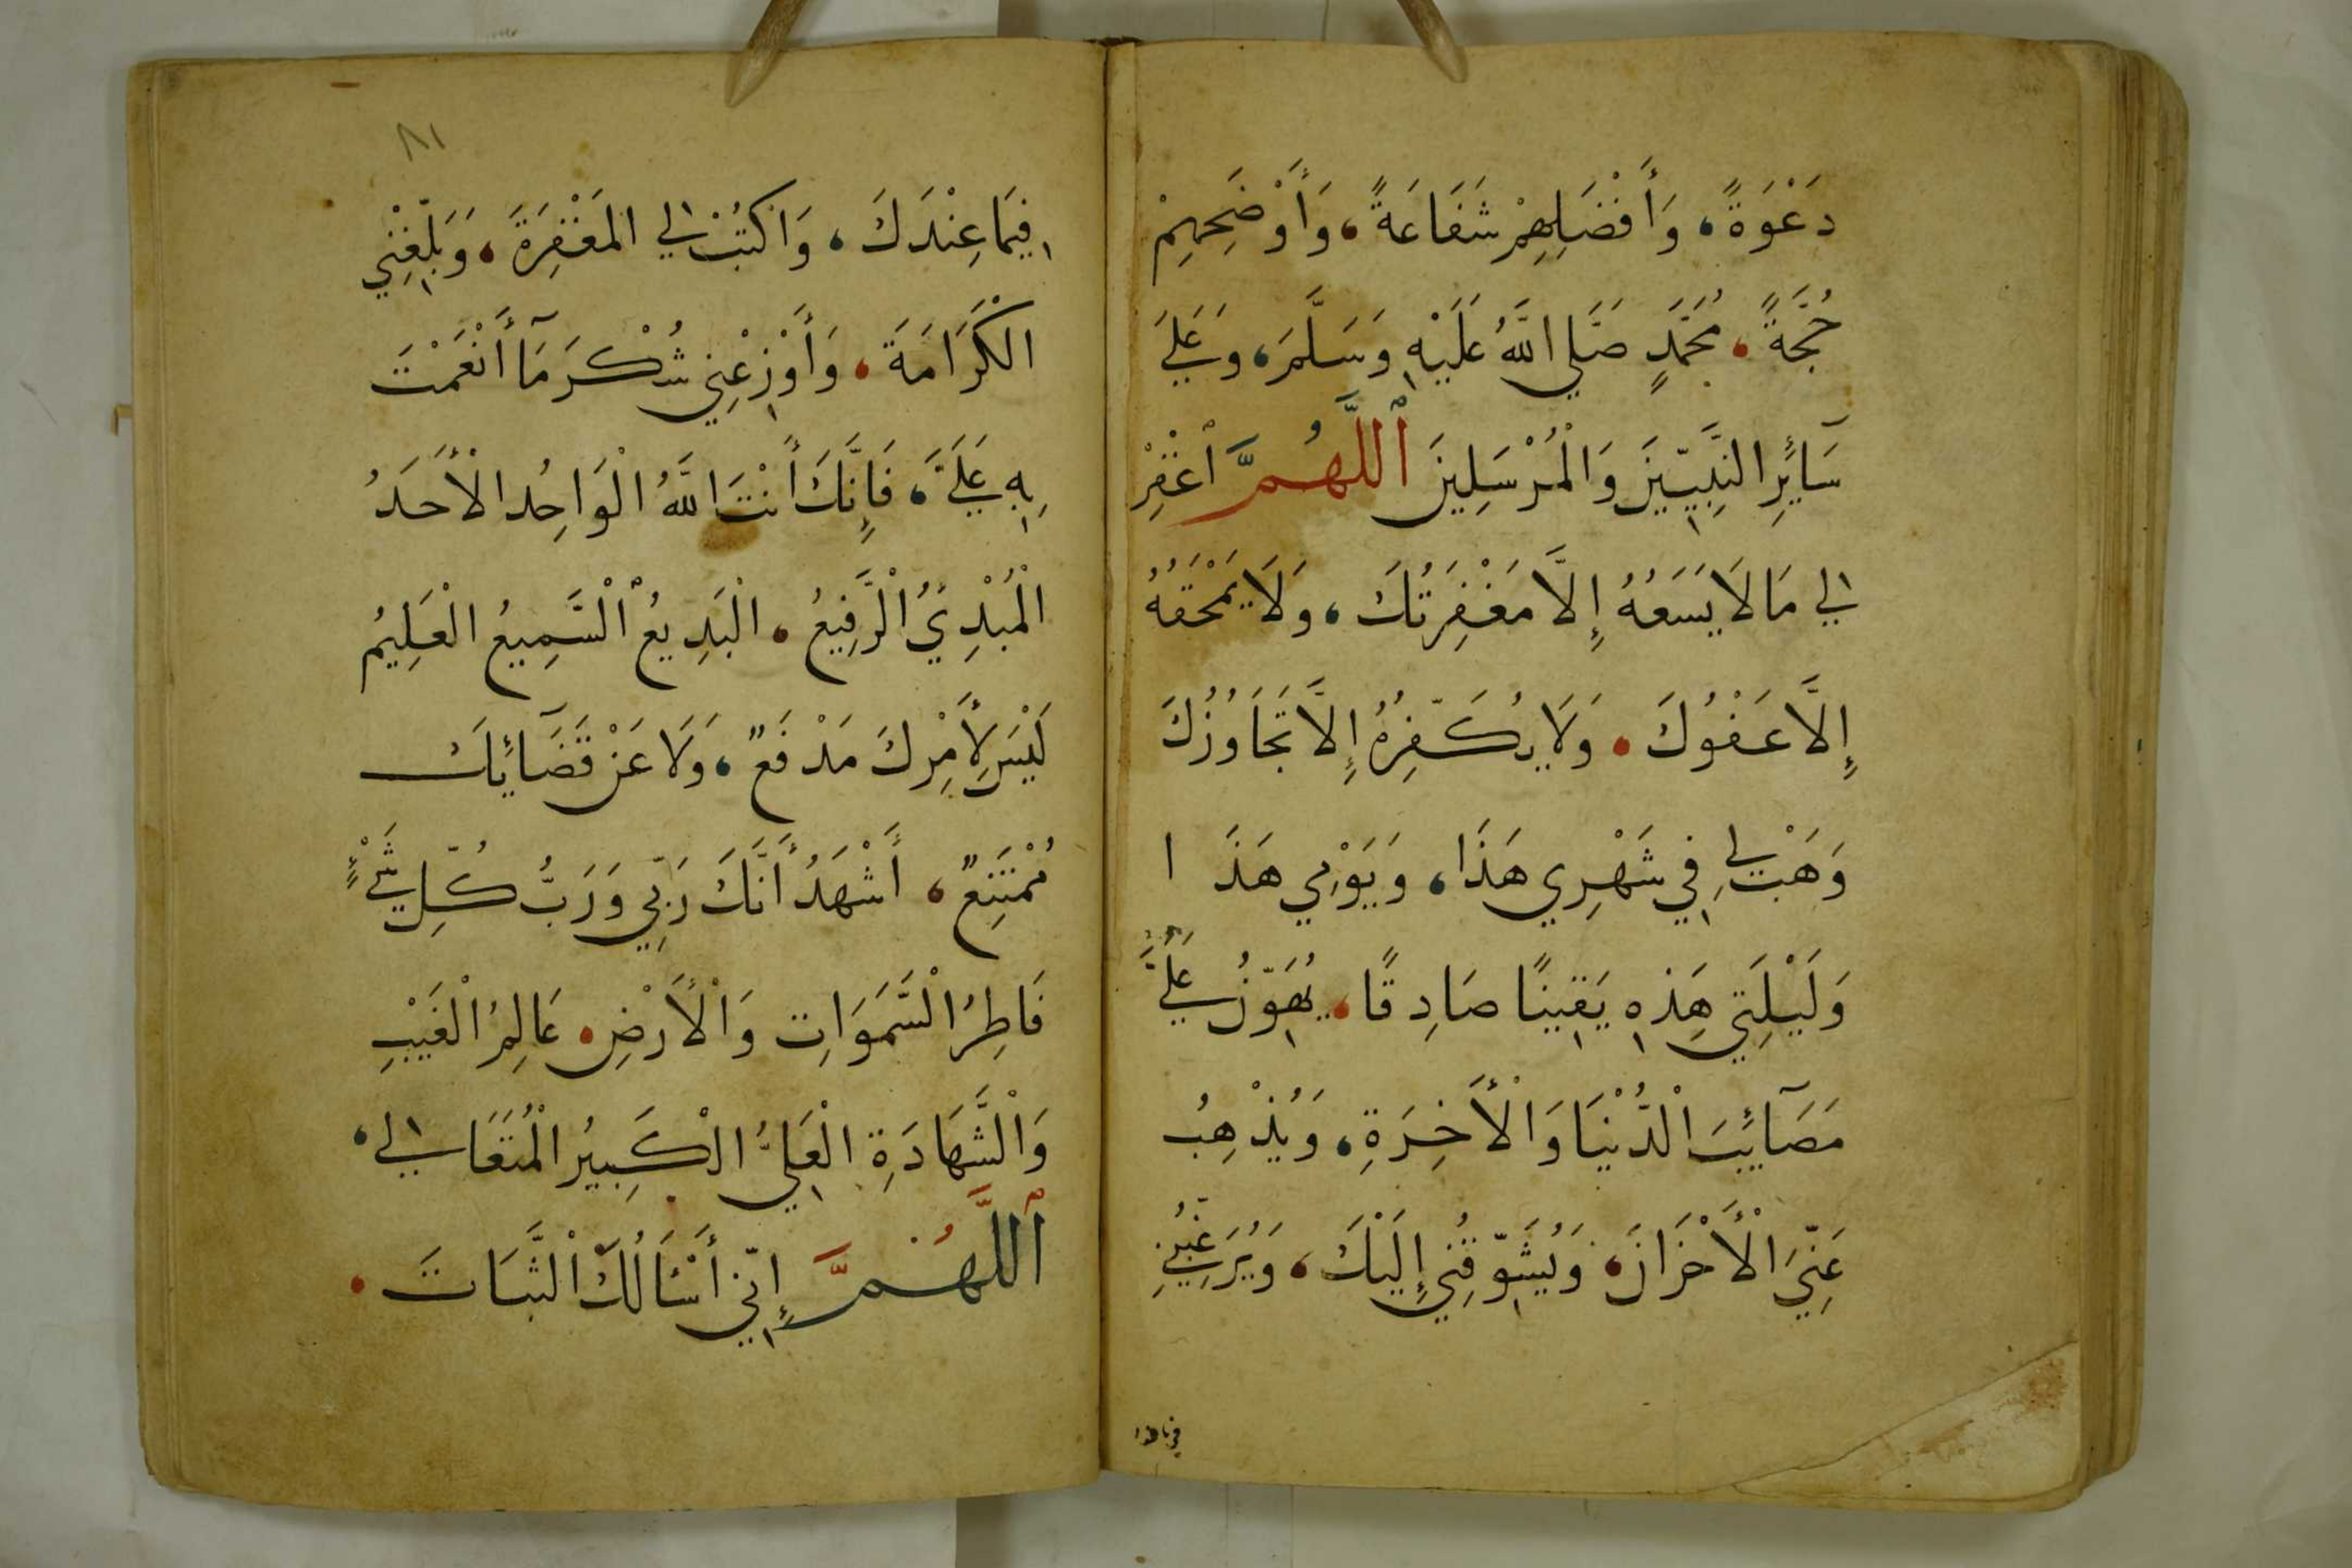 دَعْوَةً، وَأَفْضَلِهِمْ شَفَاعَةً، وَأَوْضَحِهِمْ
حُجَّةً، مُحَمَّدٍ صَلَّي اللَّهُ عَلَيْهِ وَسَلَّمَ، وَعَلَيَ
سَآئِرِ النَّبِيِّينَ وَالْمُرْسَلِينَ ٱللَّهُمَّ ٱغْفِرْ
لِي مَا لَا يَسَعُهُ إِلَّا مَغْفِرَتُكَ، وَلَا يَمْحَقُهُ
إِلَّا عَفْوُكَ، وَلَا يُكَفِّرُهُ إِلَّا تَجَاوُزُكَ
وَهَبْ لِي فِي شَهْرِي هَذَا، وَيَوْمِي هَذَا
وَلَيْلَتِي هَذِهِ يَقِينًا صَادِقًا، يُهَوِّنُ عَلَيَّ
مَصَآئِبَ الْدُّنْيَا وَالْأَخِرَةِ، وَيُذْهِبُ
عَنِّيَ الْأَحْزَانَ، وَيُشَوِّقُنِي إِلَيْكَ، وَيُرَغِّبُنِي
فيما عندك
٨١
فِيمَا عِنْدَكَ، وَاكْتُبْ لِي المَغْفِرَةَ، وَبَلِّغْنِي
الْكَرَامَةَ، وَأَوْزِعْنِي شُكْرَ مَآ أَنْعَمْتَ
بِهِ عَلَيَّ، فَإِنَّكَ أَنْتَ اللَّهُ الْوَاحِدُ الْأَحَدُ
الْمُبْدِيُ الْرَّفِيعُ، الْبَدِيعُ الْسَّمِيعُ الْعَلِيمُ
لَيْسَ لِأَمْرِكَ مَدْفَعٌ، وَلَا عَنْ قَضَآئِكَ
مُمْتَنِعٌ، أَشْهَدُ أَنَّكَ رَبِّي وَرَبُّ كُلِّ شَيْءٍ
فَاطِرُ الْسَّمَوَاتِ وَالْأَرْضِ، عَالِمُ الْغَيْبِ
وَالْشَّهَادَةِ الْعَلِيُّ الْكَبِيرُ الْمُتَعَالِي،
ٱللَّهُمَّ إِنِّي أَسْئَالُكَ الْثَّبَاتَ،